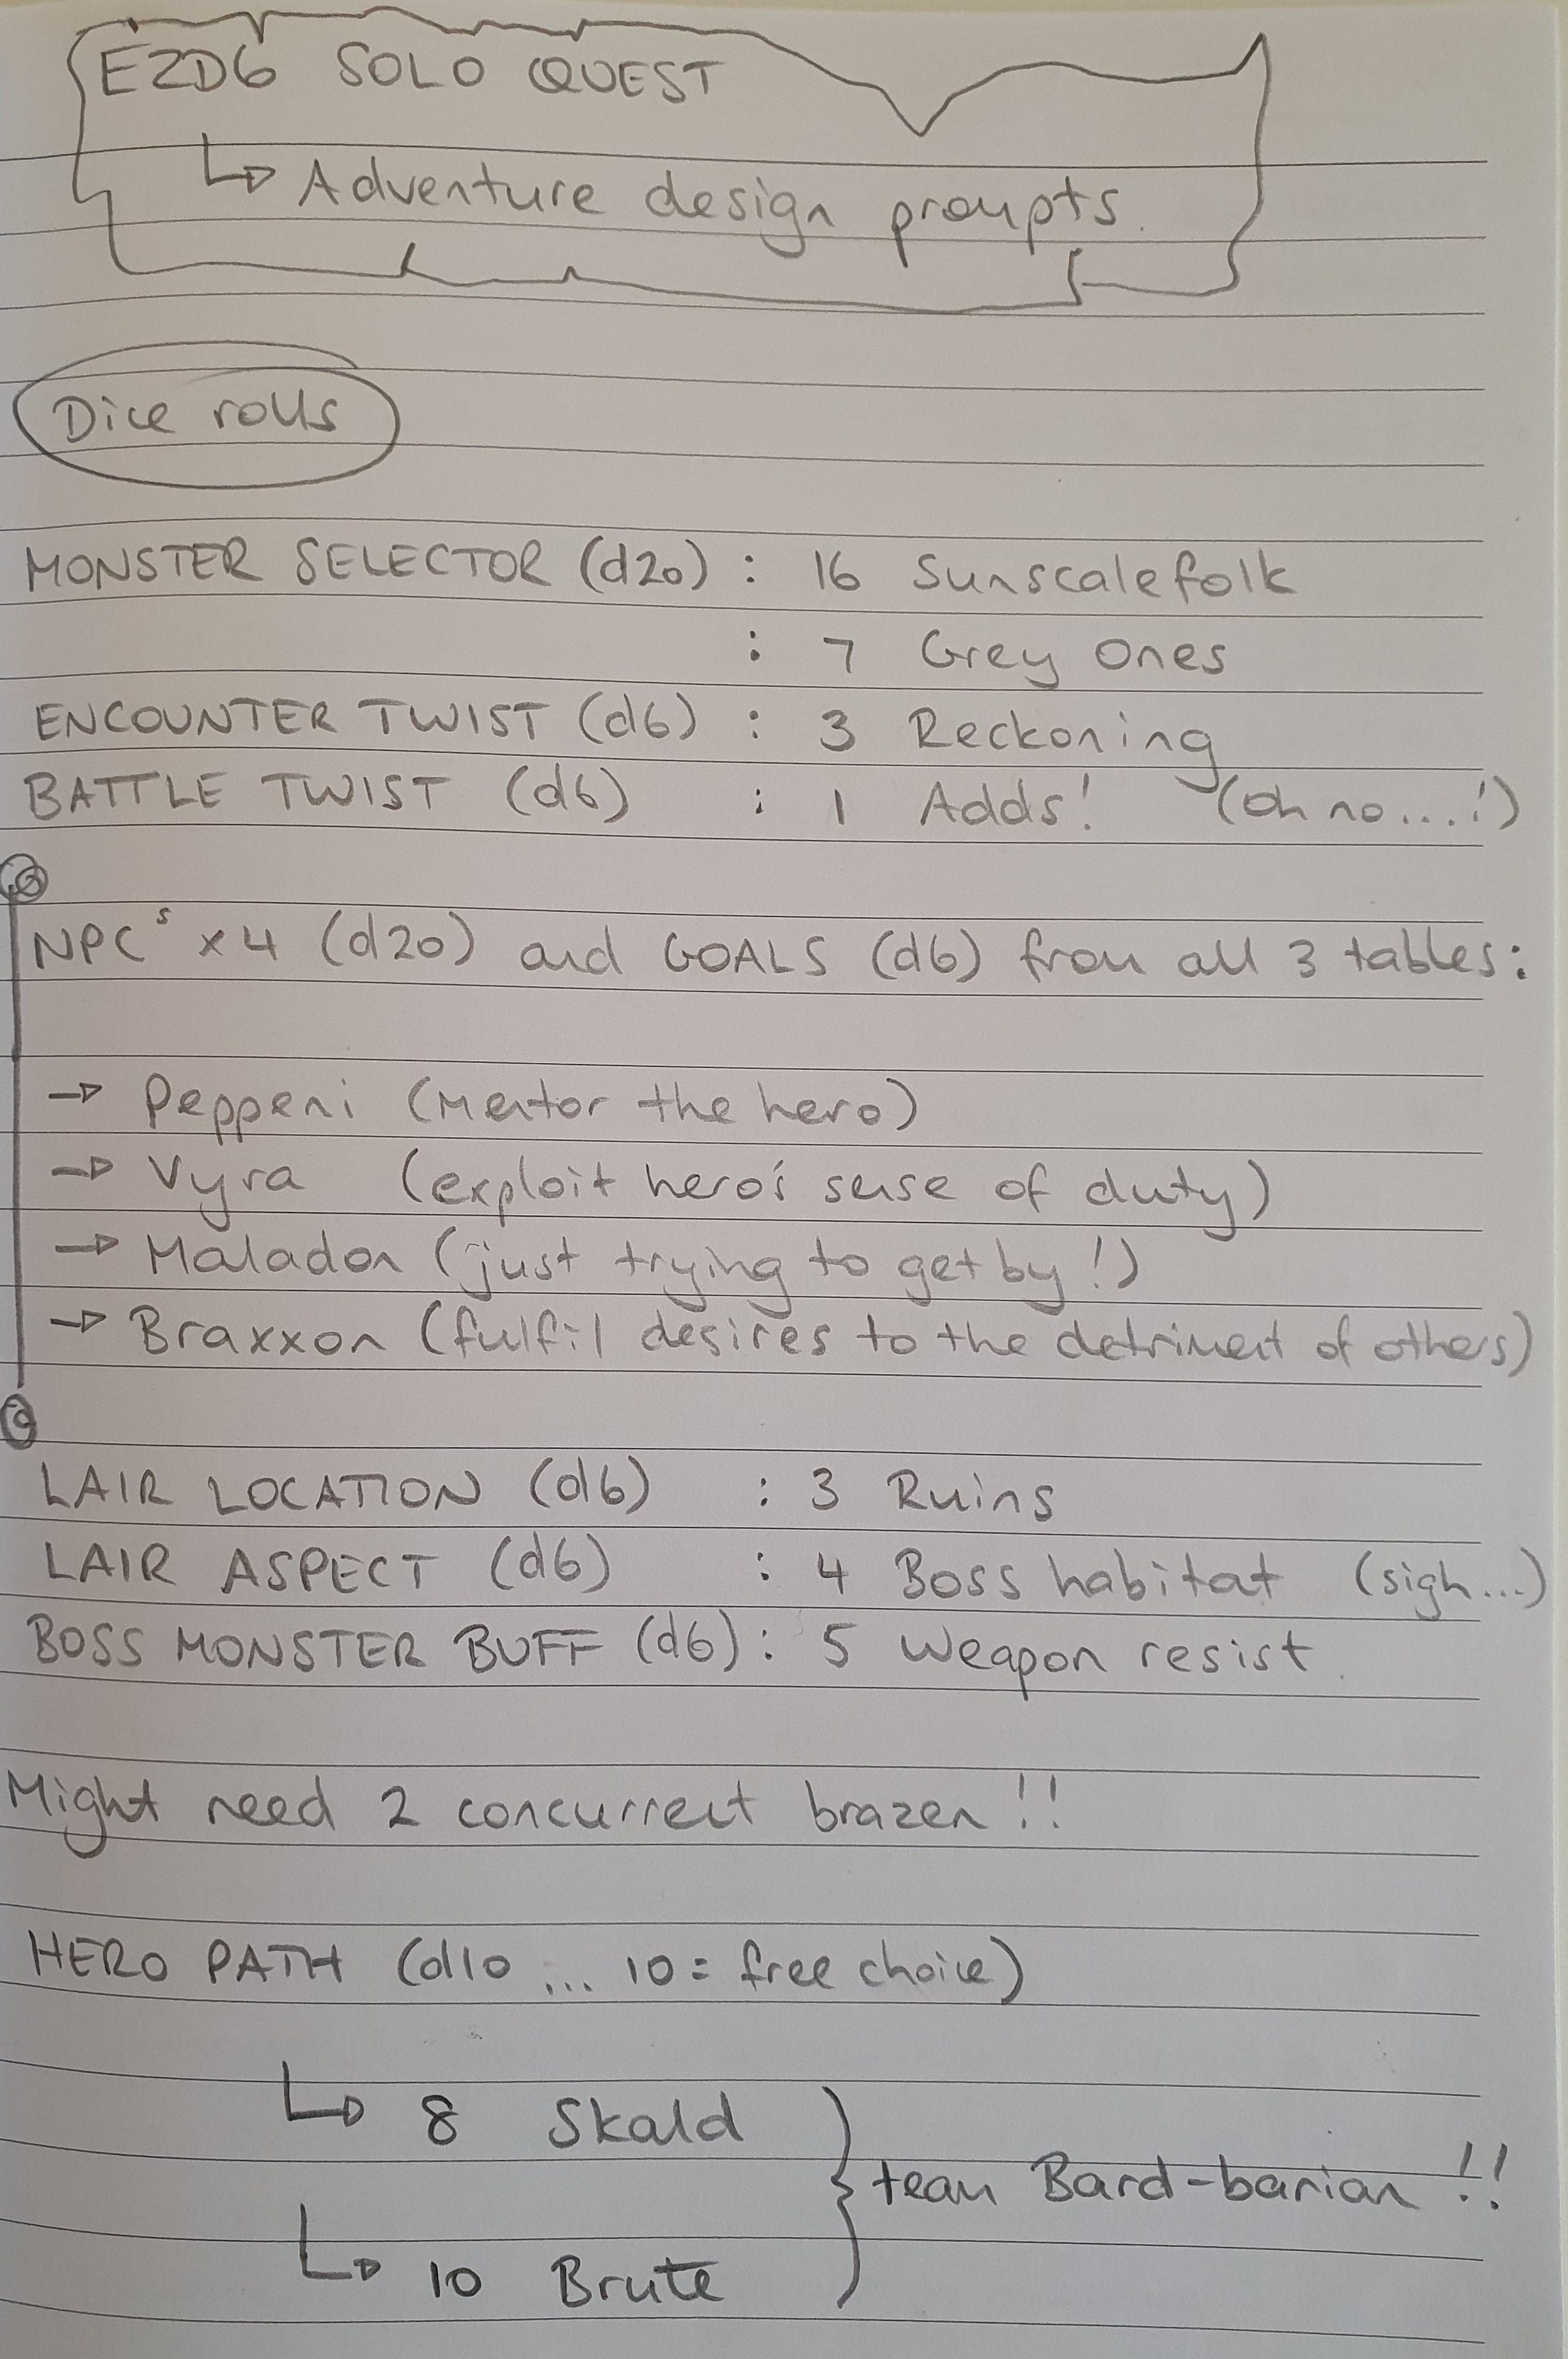 EZD6 SOLO QUEST
↳ Adventure design prompts.
Dice rolls
MONSTER SELECTOR (d20) : 16 Sunscalefolk
: 7 Grey Ones
ENCOUNTER TWIST (d6) : 3 Reckoning
BATTLE TWIST (d6) : 1 Adds! (Oh no....!)
NPCs x4 (d20) and GOALS (d6) from all 3 tables:
→ Peppeni (Mentor the hero)
→ Vyra (exploit hero's sense of duty)
→ Maladon (just trying to get by!)
→ Braxxon (fulfil desires to the detriment of others)
LAIR LOCATION (d6) : 3 Ruins
LAIR ASPECT (d6) : 4 Boss habitat (sigh...)
BOSS MONSTER BUFF (d6) : 5 Weapon resist.
Might need 2 concurrect brazen!!
HERO PATH (d10 ... 10 = free choice)
↳ 8 Skald
team Bard-barian!!
↳ 10 Brute